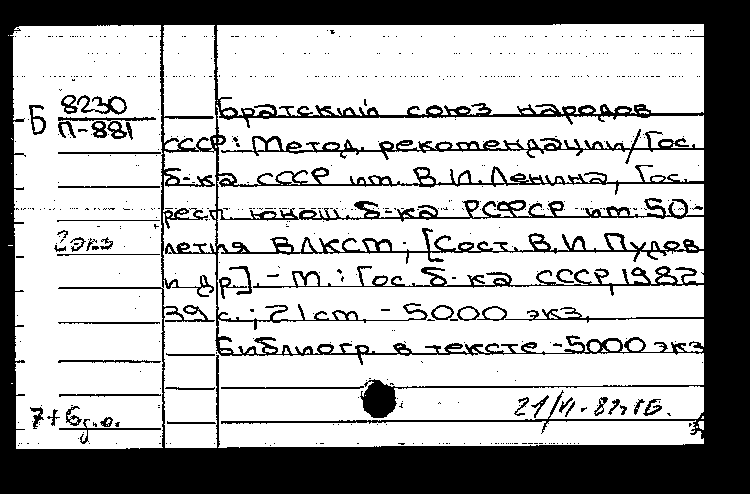 Б 8230
П-881
Братский союз народов
СССР: Метод. рекомендации/Гос.
б-ка СССР им. В.И.Ленина, Гос.
респ. юнош. б-ка РСФСР им. 50-
2экз летия ВЛКСМ; [Сост. В.И. Пудов
и др]. - М.: Гос. б-ка СССР, 1982
39 с.; 21 см. - 5000 экз.
Библиогр. в тексте. - 5000 экз
7+6